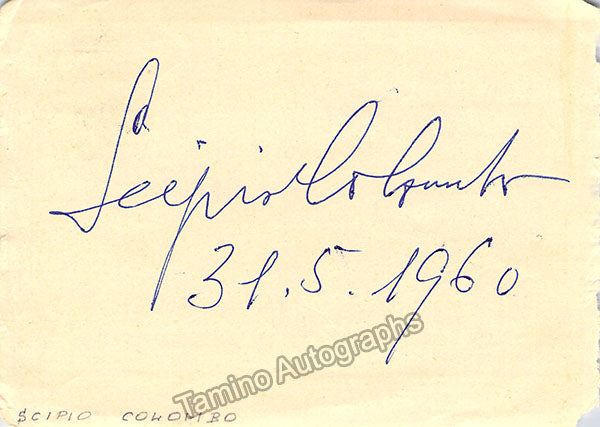 Scipio Colombo
31.5.1960
Tamino Autographs
SCIPIO COLOMBO